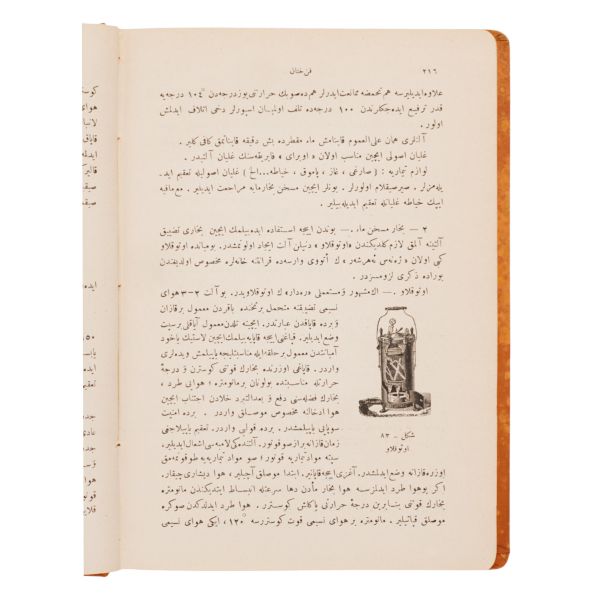 ٢١٦
فن ختان
علاوه ایدیلیرسه هم تحمضه ممانعت ایدرلر هم ده صویك حرارتی یوز درجه‌دن ١٠٤° درجه‌یه
قدر ترفیع ایده‌جكلرندن ١٠٠ درجه‌ده تلف اولمیان اسپورلر دخی اتلاف ایدلمش
اولور .
آلتلری همان علی العموم قاینامش ماء مقطرده بش دقیقه قایناتمق كافی كلیر .
غلیان اصولی ایچین مناسب اولان « اوبرای » فابریقه‌سنك غلیان آلتیدر .
لوازم تیماریه : ( صارغی ، غاز ، پاموق ، خیاطه... الخ ) غلیان اصولیله تعقیم اید‌ـ
یله‌مزلر . صیرصیقلام اولورلر . بونلر ایچین مسخن بخارمایه مراجعت ایدیلیر . مع مافیه
ایپك خیاطه غلیانله تعقیم ایدیله‌بیلیر .
٢ — بخار مسخن ماء .— بوندن اییجه استفاده ایده‌بیلمك ایچین بخاری تضییق
آلتینه آلمق لازم كلدیكندن « اوتوقلاو » دنیلن آلت ایجاد اولونمشدر . بومیانده اوتوقلاو
كبی اولان « ژه‌نه‌س ئه‌رشه‌ر » ك أتووی وارسه‌ده قرانتنه خانه‌لره مخصوص اولدیغندن
بوراده ذكری لزومسزدر .
اوتوقلاو .— اك مشهور و مستعملی « ره‌دار » ك اوتوقلاویدر . بو آلت ٢–٣ هوای
نسیمی تضییقنه متحمل برنخنده باقردن معمول برقازان
و برده قاپاقدن عبارتدر . ایچینه تلدن معمول آیاقلی برسپت
وضع ایدیلیر . قپاغنی اییجه قاپایه‌بیلمك ایچین لاستیك یاخود
آمیانتدن معمول بر حلقه ایله مناسبتلیجه یاپیلمش ویده‌لری
واردر . قاپاغی اوزرنده بخارك قوتنی كوسترن و درجۀ
حرارتله مناسبتده بولونان برمانومتره ؛ هوایی طرد ،
بخارك فضله‌سنی دفع و بعدالتبرد خلادن اجتناب ایچین
هوا ادخالنه مخصوص موصلق واردر . برده امنیت
سوپاپی یاپیلمشدر . برده قولپی واردر . تعقیم یاپیلاجغی
زمان قازانه برآز صو قونور . آلتنده‌كی لامبه‌سی اشعال ایدیلیر .
سپته مواد تیماریه قونور ؛ صو مواد تیماریه‌یه طوقونمه‌مق
اوزره قازانه وضع ایدلمشدر . آغزی اییجه قاپانیر . ابتدا موصلق آچیلیر ، هوا دیشاری چیقار .
اكر بوهوا طرد ایدلمزسه هوا بخار مأدن دها سرعتله انبساط ایتدیكندن مانومتره
بخارك قوتنی بناءً برین درجۀ حرارتی یاكلش كوسترر . هوا طرد ایدلدكدن صوكره
موصلق قپاتیلیر . مانومتره بر هوای نسیمی قوت كوستررسه ١٢٠° ، ایكی هوای نسیمی
شكل – ٨٣
اوتوقلاو